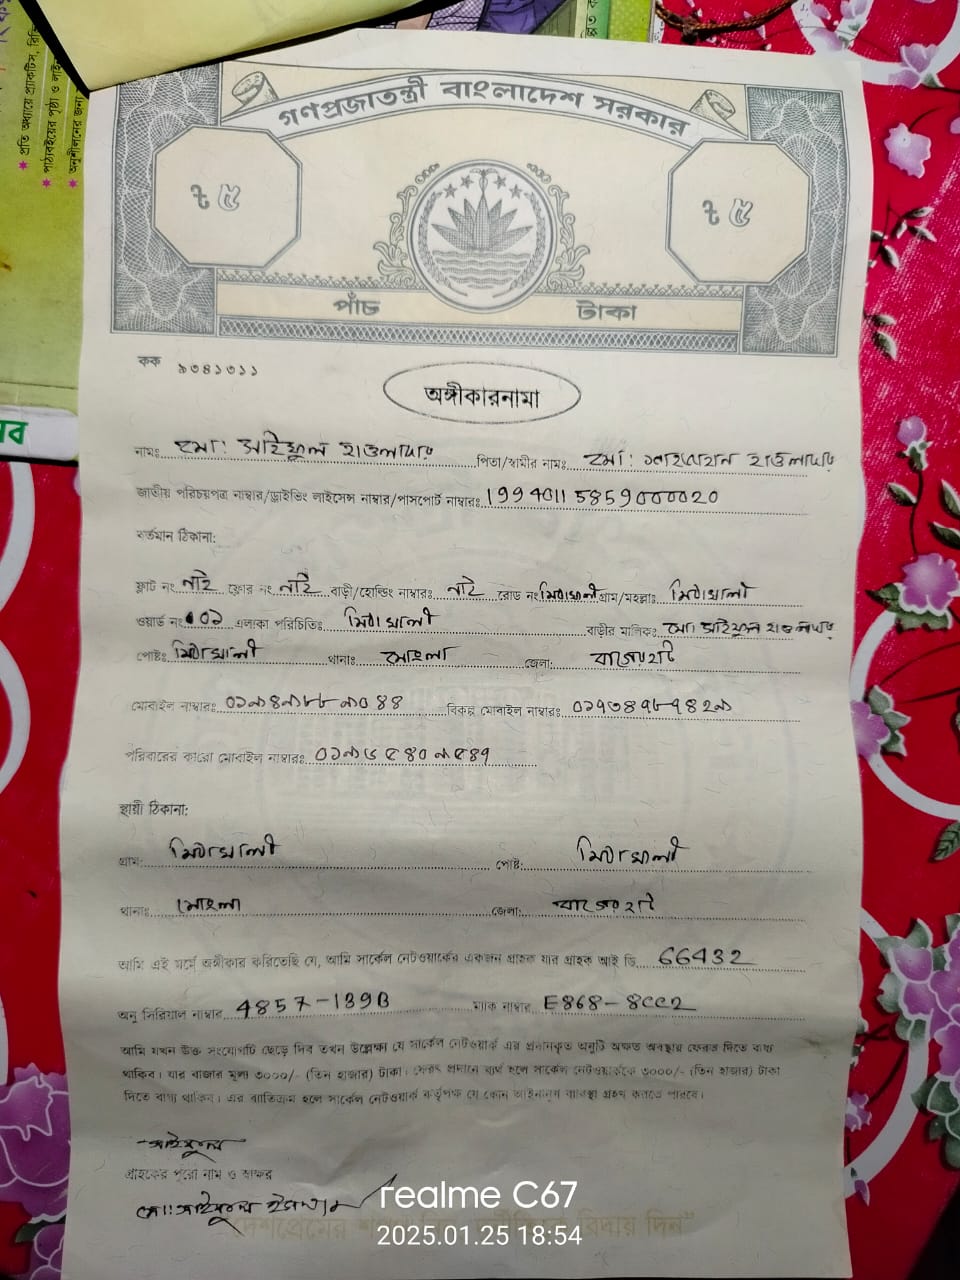 প্রতি অধ্যায়ে প্র্যাকটিস, রিভি
পাঠ্যবইয়ের পৃষ্ঠা ও লাই
অনুশীলনের জন্য
গণপ্রজাতন্ত্রী বাংলাদেশ সরকার
৳ ৫ ৳ ৫
পাঁচ টাকা
কক ৯৩৪১৩১১
অঙ্গীকারনামা
নামঃ মো: সাইফুল হাওলাদার পিতা/স্বামীর নামঃ মো: হাওলাদার
জাতীয় পরিচয়পত্র নাম্বার/ড্রাইভিং লাইসেন্স নাম্বার/পাসপোর্ট নাম্বারঃ 19940115859000020
বর্তমান ঠিকানা:
ফ্লাট নং নাই ফ্লোর নং নাই বাড়ী/হোল্ডিং নাম্বারঃ নাই রোড নং মিঠাখালী গ্রাম/মহল্লাঃ মিঠাখালী
ওয়ার্ড নং ০১ এলাকা পরিচিতিঃ মিঠাখালী বাড়ীর মালিকঃ মো: সাইফুল হাওলাদার
পোষ্টঃ মিঠাখালী থানাঃ মোংলা জেলা: বাগেরহাট
মোবাইল নাম্বারঃ বিকল্প মোবাইল নাম্বারঃ
পরিবারের কারো মোবাইল নাম্বারঃ
স্থায়ী ঠিকানা:
গ্রাম: মিঠাখালী পোষ্ট: মিঠাখালী
থানাঃ মোংলা জেলা: বাগেরহাট
আমি এই মর্মে অঙ্গীকার করিতেছি যে, আমি সার্কেল নেটওয়ার্কের একজন গ্রাহক যার গ্রাহক আই ডি 66432
অনু সিরিয়াল নাম্বার 4857-139B ম্যাক নাম্বার E868-8CC2
আমি যখন উক্ত সংযোগটি ছেড়ে দিব তখন উল্লেক্ষ্য যে সার্কেল নেটওয়ার্ক এর প্রদানকৃত অনুটি অক্ষত অবস্থায় ফেরত দিতে বাধ্য
থাকিব। যার বাজার মূল্য ৩০০০/- (তিন হাজার) টাকা। ফেরৎ প্রদানে ব্যর্থ হলে সার্কেল নেটওয়ার্ককে ৩০০০/- (তিন হাজার) টাকা
দিতে বাধ্য থাকিব। এর ব্যতিক্রম হলে সার্কেল নেটওয়ার্ক কর্তৃপক্ষ যে কোন আইনানুগ ব্যবস্থা গ্রহন করতে পারবে।
সাইফুল
গ্রাহকের পুরো নাম ও স্বাক্ষর
মো: সাইফুল ইসলাম
realme C67
2025.01.25 18:54